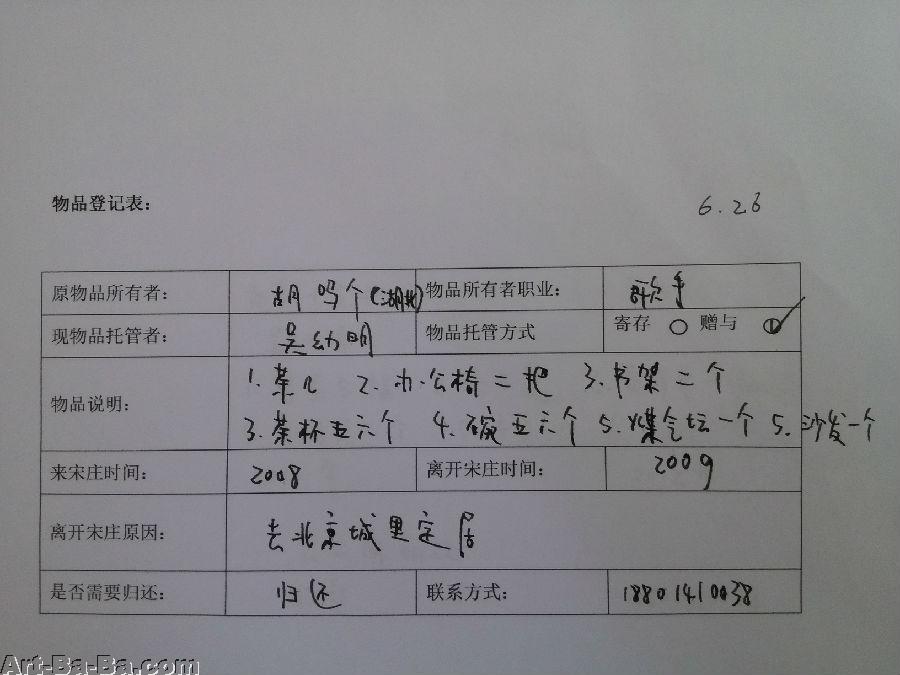 物品登记表：
6.26
原物品所有者： 胡吗个（湖北） 物品所有者职业： 歌手
现物品托管者： 吴幼明 物品托管方式 寄存 ○ 赠与 ○✓
物品说明： 1. 茶几 2. 办公椅二把 3. 书架二个
3. 茶杯五六个 4. 碗五六个 5. 煤气坛一个 5. 沙发一个
来宋庄时间： 2008 离开宋庄时间： 2009
离开宋庄原因： 去北京城里定居
是否需要归还： 归还 联系方式： 18801410038
Art-Ba-Ba.com